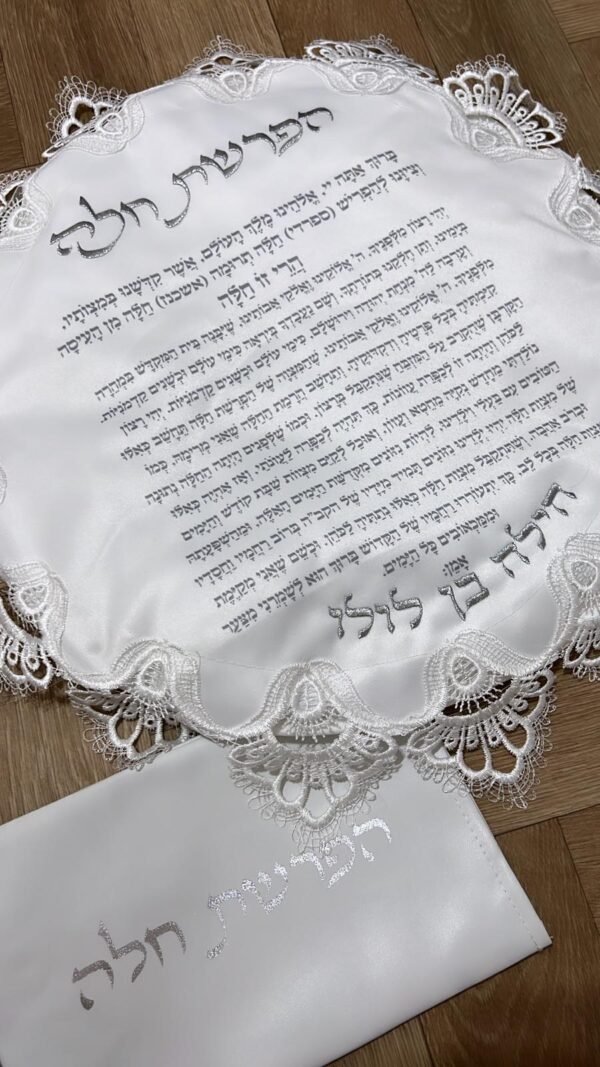 הפרשת חלה
בָּרוּךְ אַתָּה יְיָ, אֱלֹהֵינוּ מֶלֶךְ הָעוֹלָם, אֲשֶׁר קִדְּשָׁנוּ בְּמִצְוֹתָיו,
וְצִוָּנוּ לְהַפְרִישׁ (ספרדי) חַלָּה תְּרוּמָה (אשכנזי) חַלָּה מִן הָעִיסָה
הֲרֵי זוֹ חַלָּה
יְהִי רָצוֹן מִלְּפָנֶיךָ, ה' אֱלֹקֵינוּ וֵאלֹקֵי אֲבוֹתֵינוּ, שֶׁיִּבָּנֶה בֵּית הַמִּקְדָּשׁ בִּמְהֵרָה
בְיָמֵינוּ, וְתֵן חֶלְקֵנוּ בְּתוֹרָתֶךָ, וְשָׁם נַעֲבָדְךָ בְּיִרְאָה כִּימֵי עוֹלָם וּכְשָׁנִים קַדְמוֹנִיּוֹת.
וְעָרְבָה לַה' מִנְחַת יְהוּדָה וִירוּשָׁלָיִם כִּימֵי עוֹלָם וּכְשָׁנִים קַדְמוֹנִיּוֹת. יְהִי רָצוֹן
מִלְּפָנֶיךָ, ה' אֱלֹקֵינוּ וֵאלֹקֵי אֲבוֹתֵינוּ, שֶׁהַמִּצְוָה שֶׁל הַפְרָשַׁת חַלָּה תֵּחָשֵׁב כְּאִלּוּ
קִיַּמְתִּיהָ בְּכָל פְּרָטֶיהָ וְדִקְדּוּקֶיהָ, וְתֵחָשֵׁב הֲרָמַת הַחַלָּה שֶׁאֲנִי מְרִימָה, כְּמוֹ
הַקָּרְבָּן שֶׁהֻקְרַב עַל הַמִּזְבֵּחַ שֶׁנִּתְקַבֵּל בְּרָצוֹן. וּכְמוֹ שֶׁלְּפָנִים הָיְתָה הַחַלָּה נְתוּנָה
לַכֹּהֵן וְהָיְתָה זוֹ לְכַפָּרַת עֲווֹנוֹת, כָּךְ תִּהְיֶה לְכַפָּרָה לַעֲווֹנוֹתַי, וְאָז אֶהְיֶה כְּאִלּוּ
נוֹלַדְתִּי מֵחָדָשׁ נְקִיָּה מֵחֵטְא וְעָווֹן, וְאוּכַל לְקַיֵּם מִצְוַת שַׁבַּת קוֹדֶשׁ וְהַיָּמִים
הַטּוֹבִים עִם בַּעְלִי וִילָדֵינוּ, לִהְיוֹת נִזּוֹנִים מִקְּדֻשַּׁת הַיָּמִים הָאֵלֶּה, וּמֵהַשְׁפָּעָתָהּ
שֶׁל מִצְוַת חַלָּה יִהְיוּ יְלָדֵינוּ נִזּוֹנִים תָּמִיד מִיָּדָיו שֶׁל הַקָּבָּ"ה בְּרוֹב רַחֲמָיו וַחֲסָדָיו
וּבְרוֹב אַהֲבָה, וְשֶׁתִּתְקַבֵּל מִצְוַת חַלָּה כְּאִלּוּ נְתַתִּיהָ לַכֹּהֵן. וּכְשֵׁם שֶׁאֲנִי מְקַיֶּמֶת
מִצְוַת חַלָּה בְּכָל לֵב, כָּךְ יִתְעוֹרְרוּ רַחֲמָיו שֶׁל הַקָּדוֹשׁ בָּרוּךְ הוּא לְשָׁמְרֵנִי מִצַּעַר
וּמִמַּכְאוֹבִים כָּל הַיָּמִים.
אָמֵן.
הילה בן לולו
הפרשת חלה